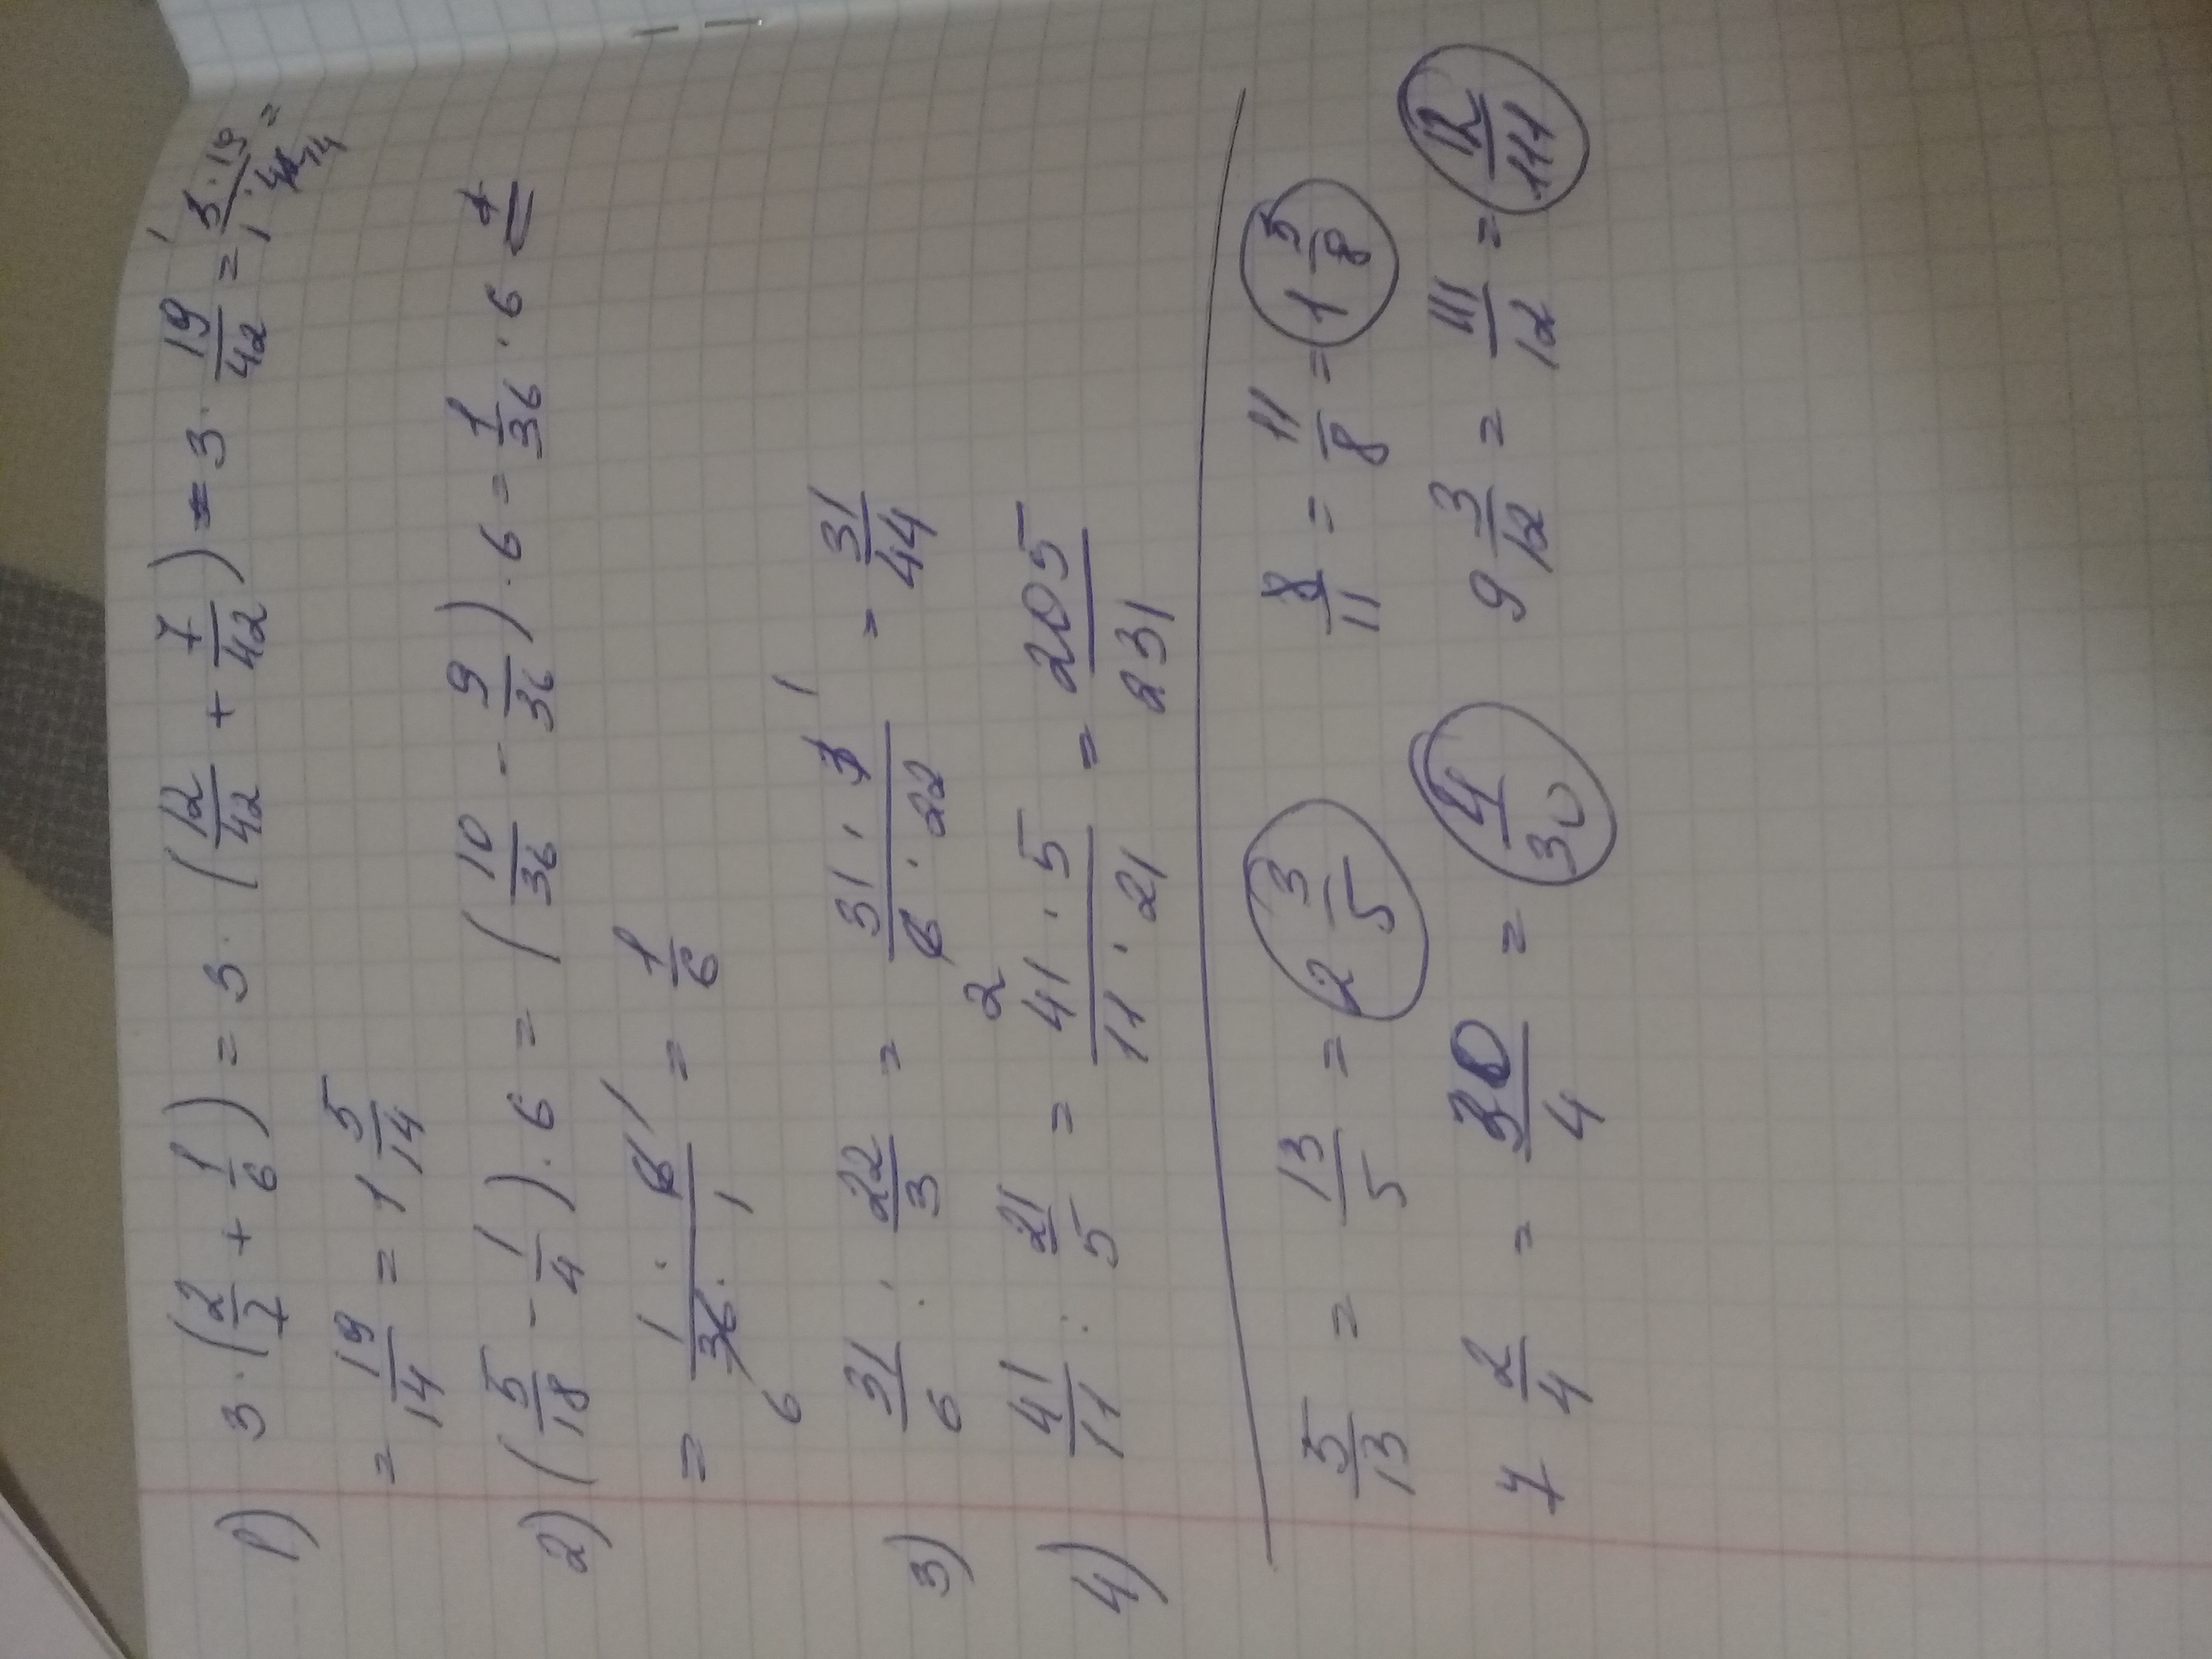 1) 3 · (2/7 + 1/6) = 3 · (12/42 + 7/42) = 3 · 19/42 = 3 · 19 / 1 · 42 =
= 19/14 = 1 5/14
2) (5/18 - 1/4) · 6 = (10/36 - 9/36) · 6 = 1/36 · 6 =
= 1 · 6 / 36 · 1 = 1/6
3) 31/6 : 22/3 = 31 · 3 / 6 · 22 = 31/44
4) 41/11 : 21/5 = 41 · 5 / 11 · 21 = 205/231
5/13 = 13/5 = 2 3/5 8/11 = 11/8 = 1 5/8
7 2/4 = 30/4 = 4/30 9 3/12 = 111/12 = 12/111